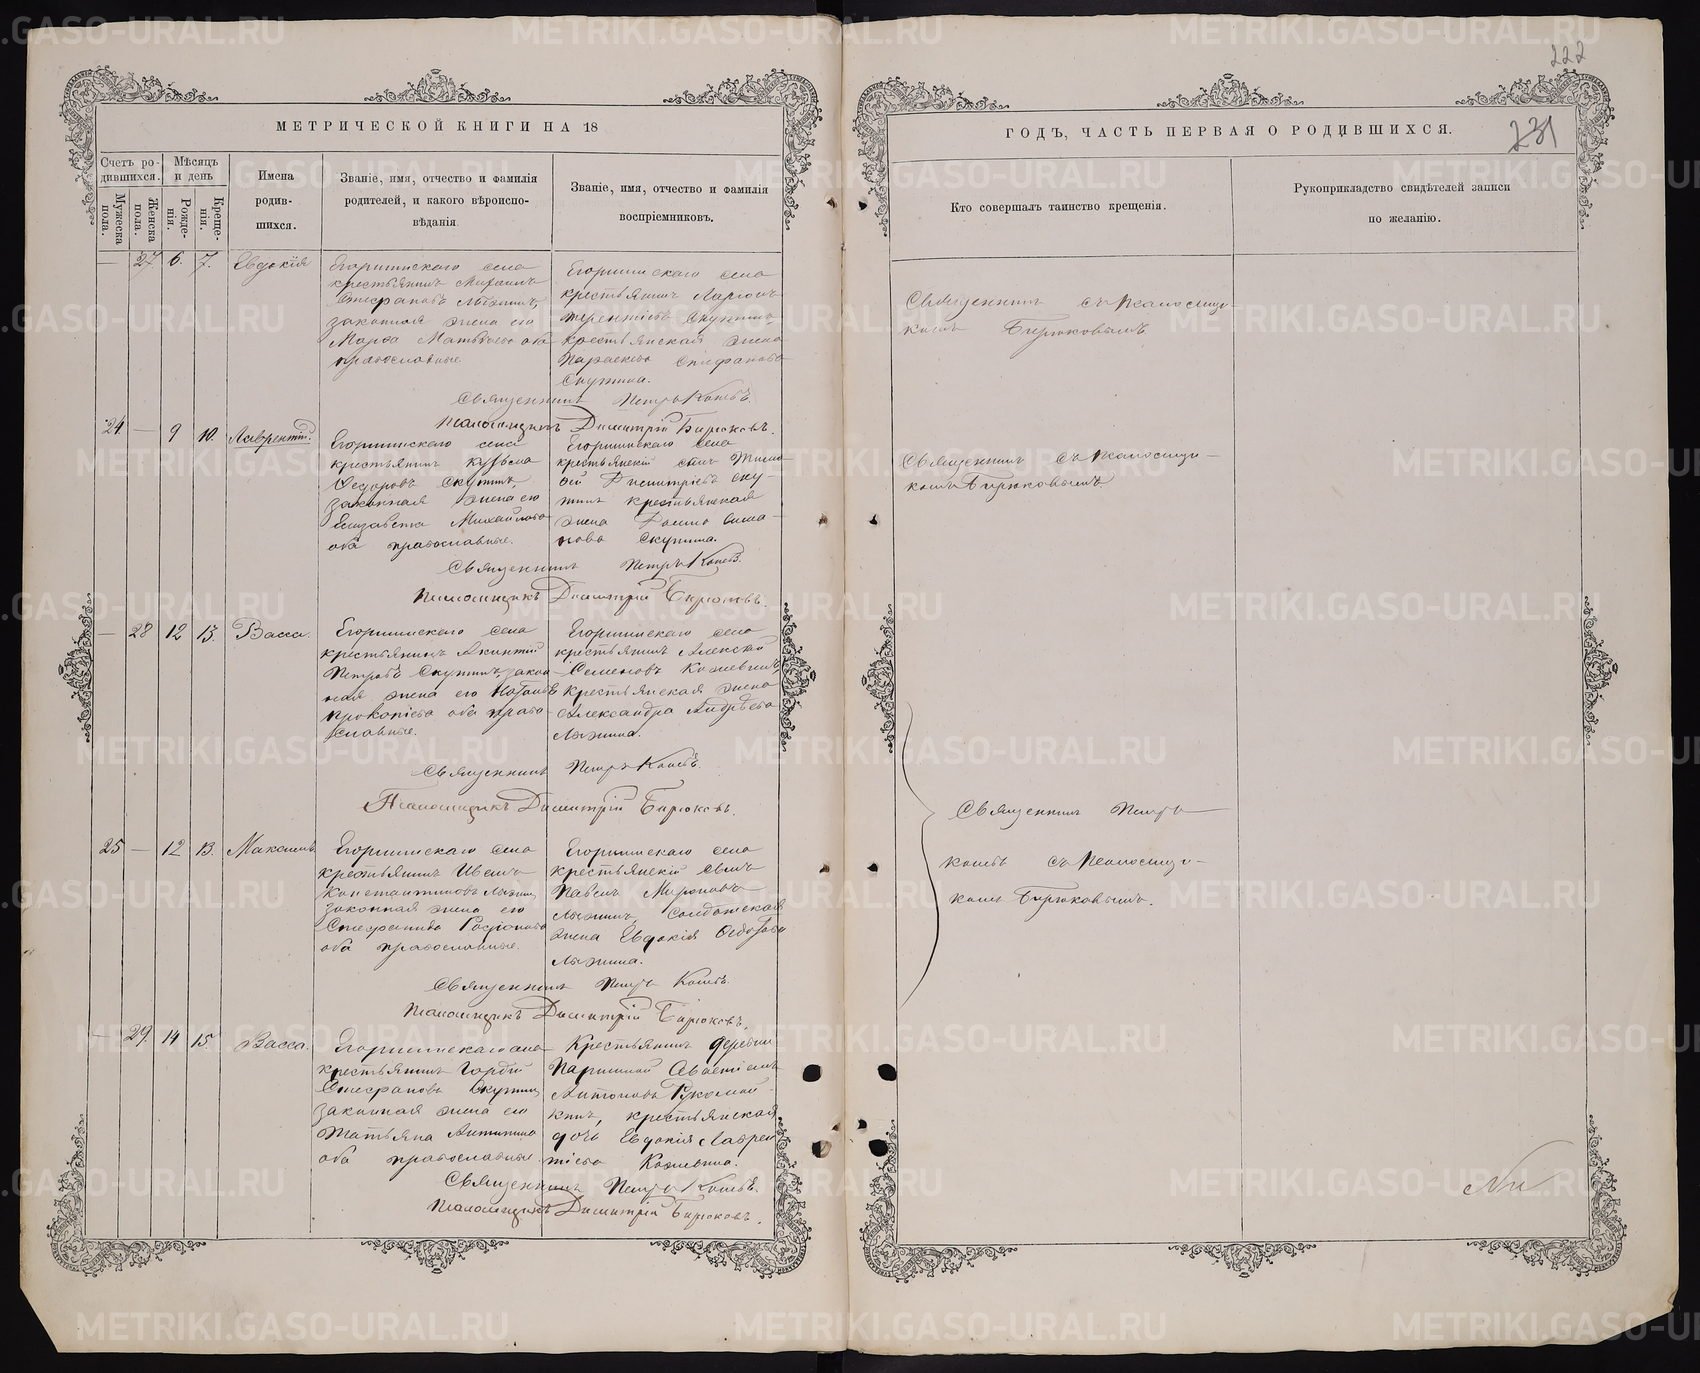 222
231
МЕТРИЧЕСКОЙ КНИГИ НА 18
ГОДЪ, ЧАСТЬ ПЕРВАЯ О РОДИВШИХСЯ.
Счетъ ро-
дившихся.
Мужеска пола.
Женска пола.
Мѣсяцъ
и день
Рожде-
нія.
Креще-
нія.
Имена
родив-
шихся.
Званіе, имя, отчество и фамилія
родителей, и какого вѣроиспо-
вѣданія
Званіе, имя, отчество и фамилія
воспріемниковъ.
Кто совершалъ таинство крещенія.
Рукоприкладство свидѣтелей записи
по желанію.
— 27 6. 7. Евдокія
Егоршинскаго села
крестьянинъ Михаилъ
Стефановъ
законная жена его
Марфа Матвѣева оба
православные
Егоршинскаго села
крестьянинъ Ларіонъ
Терентьевъ Скутинъ,
крестьянская жена
Параскева Епифанова
Скутина.
Священникъ Петръ Коневъ.
Псаломщикъ Димитрій Бирюковъ.
Священникъ съ псаломщи-
комъ Бирюковымъ
24 — 9 10. Лаврентій.
Егоршинскаго села
крестьянинъ Кузьма
Ѳедоровъ Скутинъ,
законная жена его
Елизавета Михайлова
оба православные.
Егоршинскаго села
крестьянскій сынъ Тимо-
фей Димитріевъ Ску-
тинъ крестьянская
жена
нова Скутина.
Священникъ Петръ Коневъ.
Псаломщикъ Димитрій Бирюковъ.
Священникъ съ псаломщи-
комъ Бирюковымъ.
— 28 12 13. Васса.
Егоршинскаго села
крестьянинъ Акинтій
Петровъ Скутинъ, закон-
ная жена его Наталья
Прокопіева оба право-
славные.
Егоршинскаго села
крестьянинъ Алексѣй
Семеновъ Кожевинъ,
крестьянская жена
Александра Андрѣева
Лыжина.
Священникъ Петръ Коневъ.
Псаломщикъ Димитрій Бирюковъ.
25 — 12 13. Максимъ.
Егоршинскаго села
крестьянинъ Иванъ
Константиновъ Лыжинъ,
законная жена его
Стефанида
оба православные.
Егоршинскаго села
крестьянскій сынъ
Павелъ Мироновъ
Лыжинъ, солдатская
жена Евдокія Ѳедотова
Лыжина.
Священникъ Петръ Коневъ.
Псаломщикъ Димитрій Бирюковъ.
Священникъ Петръ
Коневъ съ псаломщи-
комъ Бирюковымъ.
— 29. 14 15. Васса.
Егоршинскаго села
крестьянинъ Гордій
Стефановъ Скутинъ,
законная жена его
Татьяна Антипина
оба православные.
Крестьянинъ деревни
Паршиной
Антоновъ Рукомой-
кинъ, крестьянская
дочь Евдокія Лаврен-
тіева Кожевина.
Священникъ Петръ Коневъ.
Псаломщикъ Димитрій Бирюковъ.
METRIKI.GASO-URAL.RU